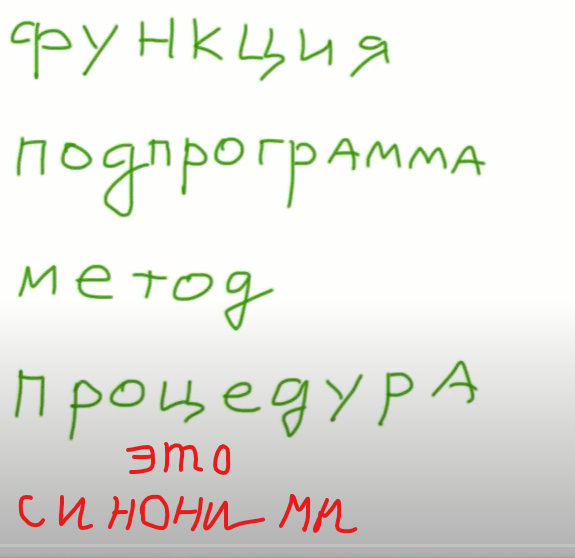 функция
подпрограмма
метод
процедура
это
синоними